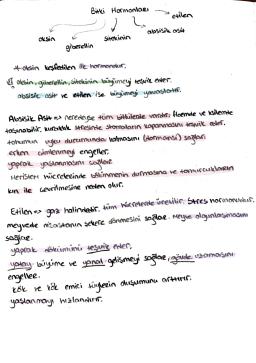 Bitki Hormonları
oksin
giberellin
sitokinin
absisik asit
etilen
→ oksin keşfedilen ilk hormondur.
oksin, giberellin, sitokinin büyümeyi teşvik eder.
absisik asit ve etilen ise büyümeyi yavaşlatır.
Absisik Asit => neredeyse tüm bitkilerde vardır, floemde ve ksilemde
taşınabilir. kuraklık stresinde stomaların kapanmasını teşvik eder.
tohumun uyku durumunda kalmasını (dormansi) sağlar.
erken çimlenmeyi engeller.
yaprak yaşlanmasını sağlar.
Meristem hücrelerinde bölünmenin durmasına ve tomurcukların
kın ile çevrilmesine neden olur.
Etilen => gaz halindedir. tüm hücrelerde üretilir. Stres hormonudur.
meyvede nişastanın şekere dönmesini sağlar. Meyve olgunlaşmasını
sağlar.
yaprak dökümünü teşvik eder.
yatay büyüme ve yanal gelişmeyi sağlar, gövde uzamasını
engeller.
kök ve kök emici tüylerin oluşumunu arttırır.
yaşlanmayı hızlandırır.